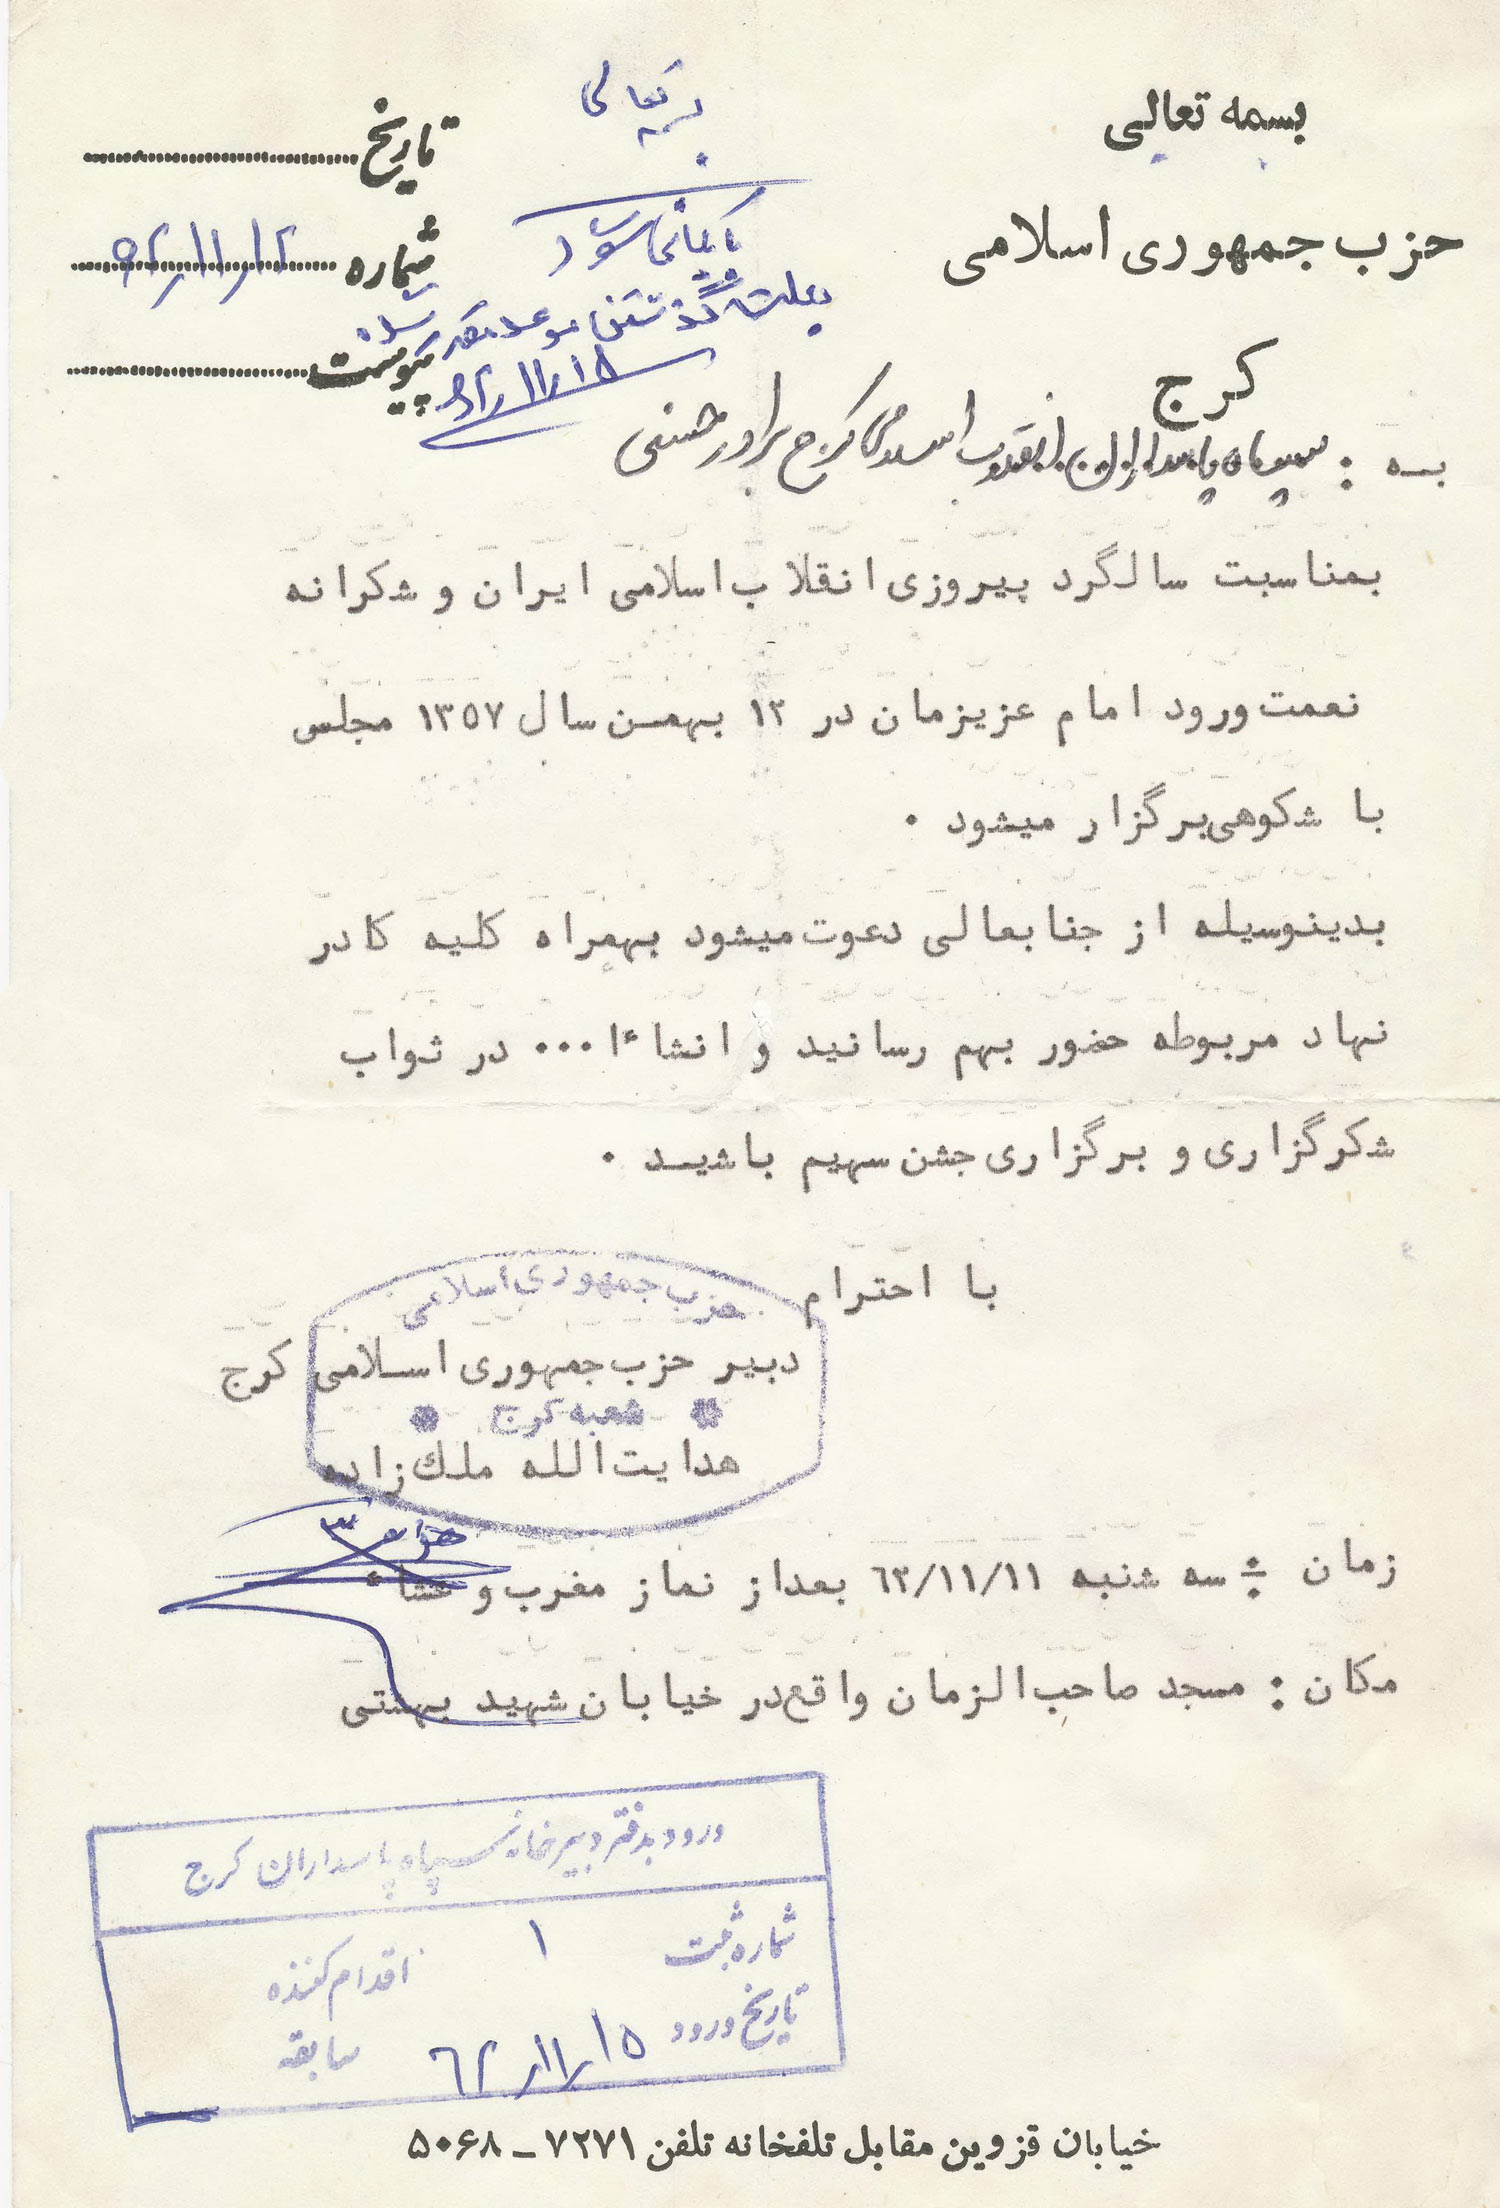 بسمه تعالی
حزب جمهوری اسلامی
کرج
تاریخ
شماره ۶۲/۱۱/۱۲
پیوست
بسمه تعالی
بایگانی شود
بعلت گذشتن موعد مقرر شده
۶۲/۱۱/۱۵
به : سپاه پاسداران انقلاب اسلامی کرج برادر حسنی
بمناسبت سالگرد پیروزی انقلاب اسلامی ایران و شکرانه
نعمت ورود امام عزیزمان در ۱۲ بهمن سال ۱۳۵۷ مجلس
با شکوهی برگزار میشود .
بدینوسیله از جنابعالی دعوت میشود بهمراه کلیه کادر
نهاد مربوطه حضور بهم رسانید و انشاءا... در ثواب
شکرگزاری و برگزاری جشن سهیم باشید .
با احترام
حزب جمهوری اسلامی
دبیر حزب جمهوری اسلامی کرج
شعبه کرج
هدایت الله ملک زاده
زمان : سه شنبه ۶۲/۱۱/۱۱ بعد از نماز مغرب و عشاء
مکان : مسجد صاحب الزمان واقع در خیابان شهید بهشتی
ورود بدفتر دبیرخانه سپاه پاسداران کرج
شماره ثبت ۱ اقدام کننده
تاریخ ورود ۶۲/۱۱/۱۵ سابقه
خیابان قزوین مقابل تلفخانه تلفن ۷۲۷۱ - ۵۰۶۸